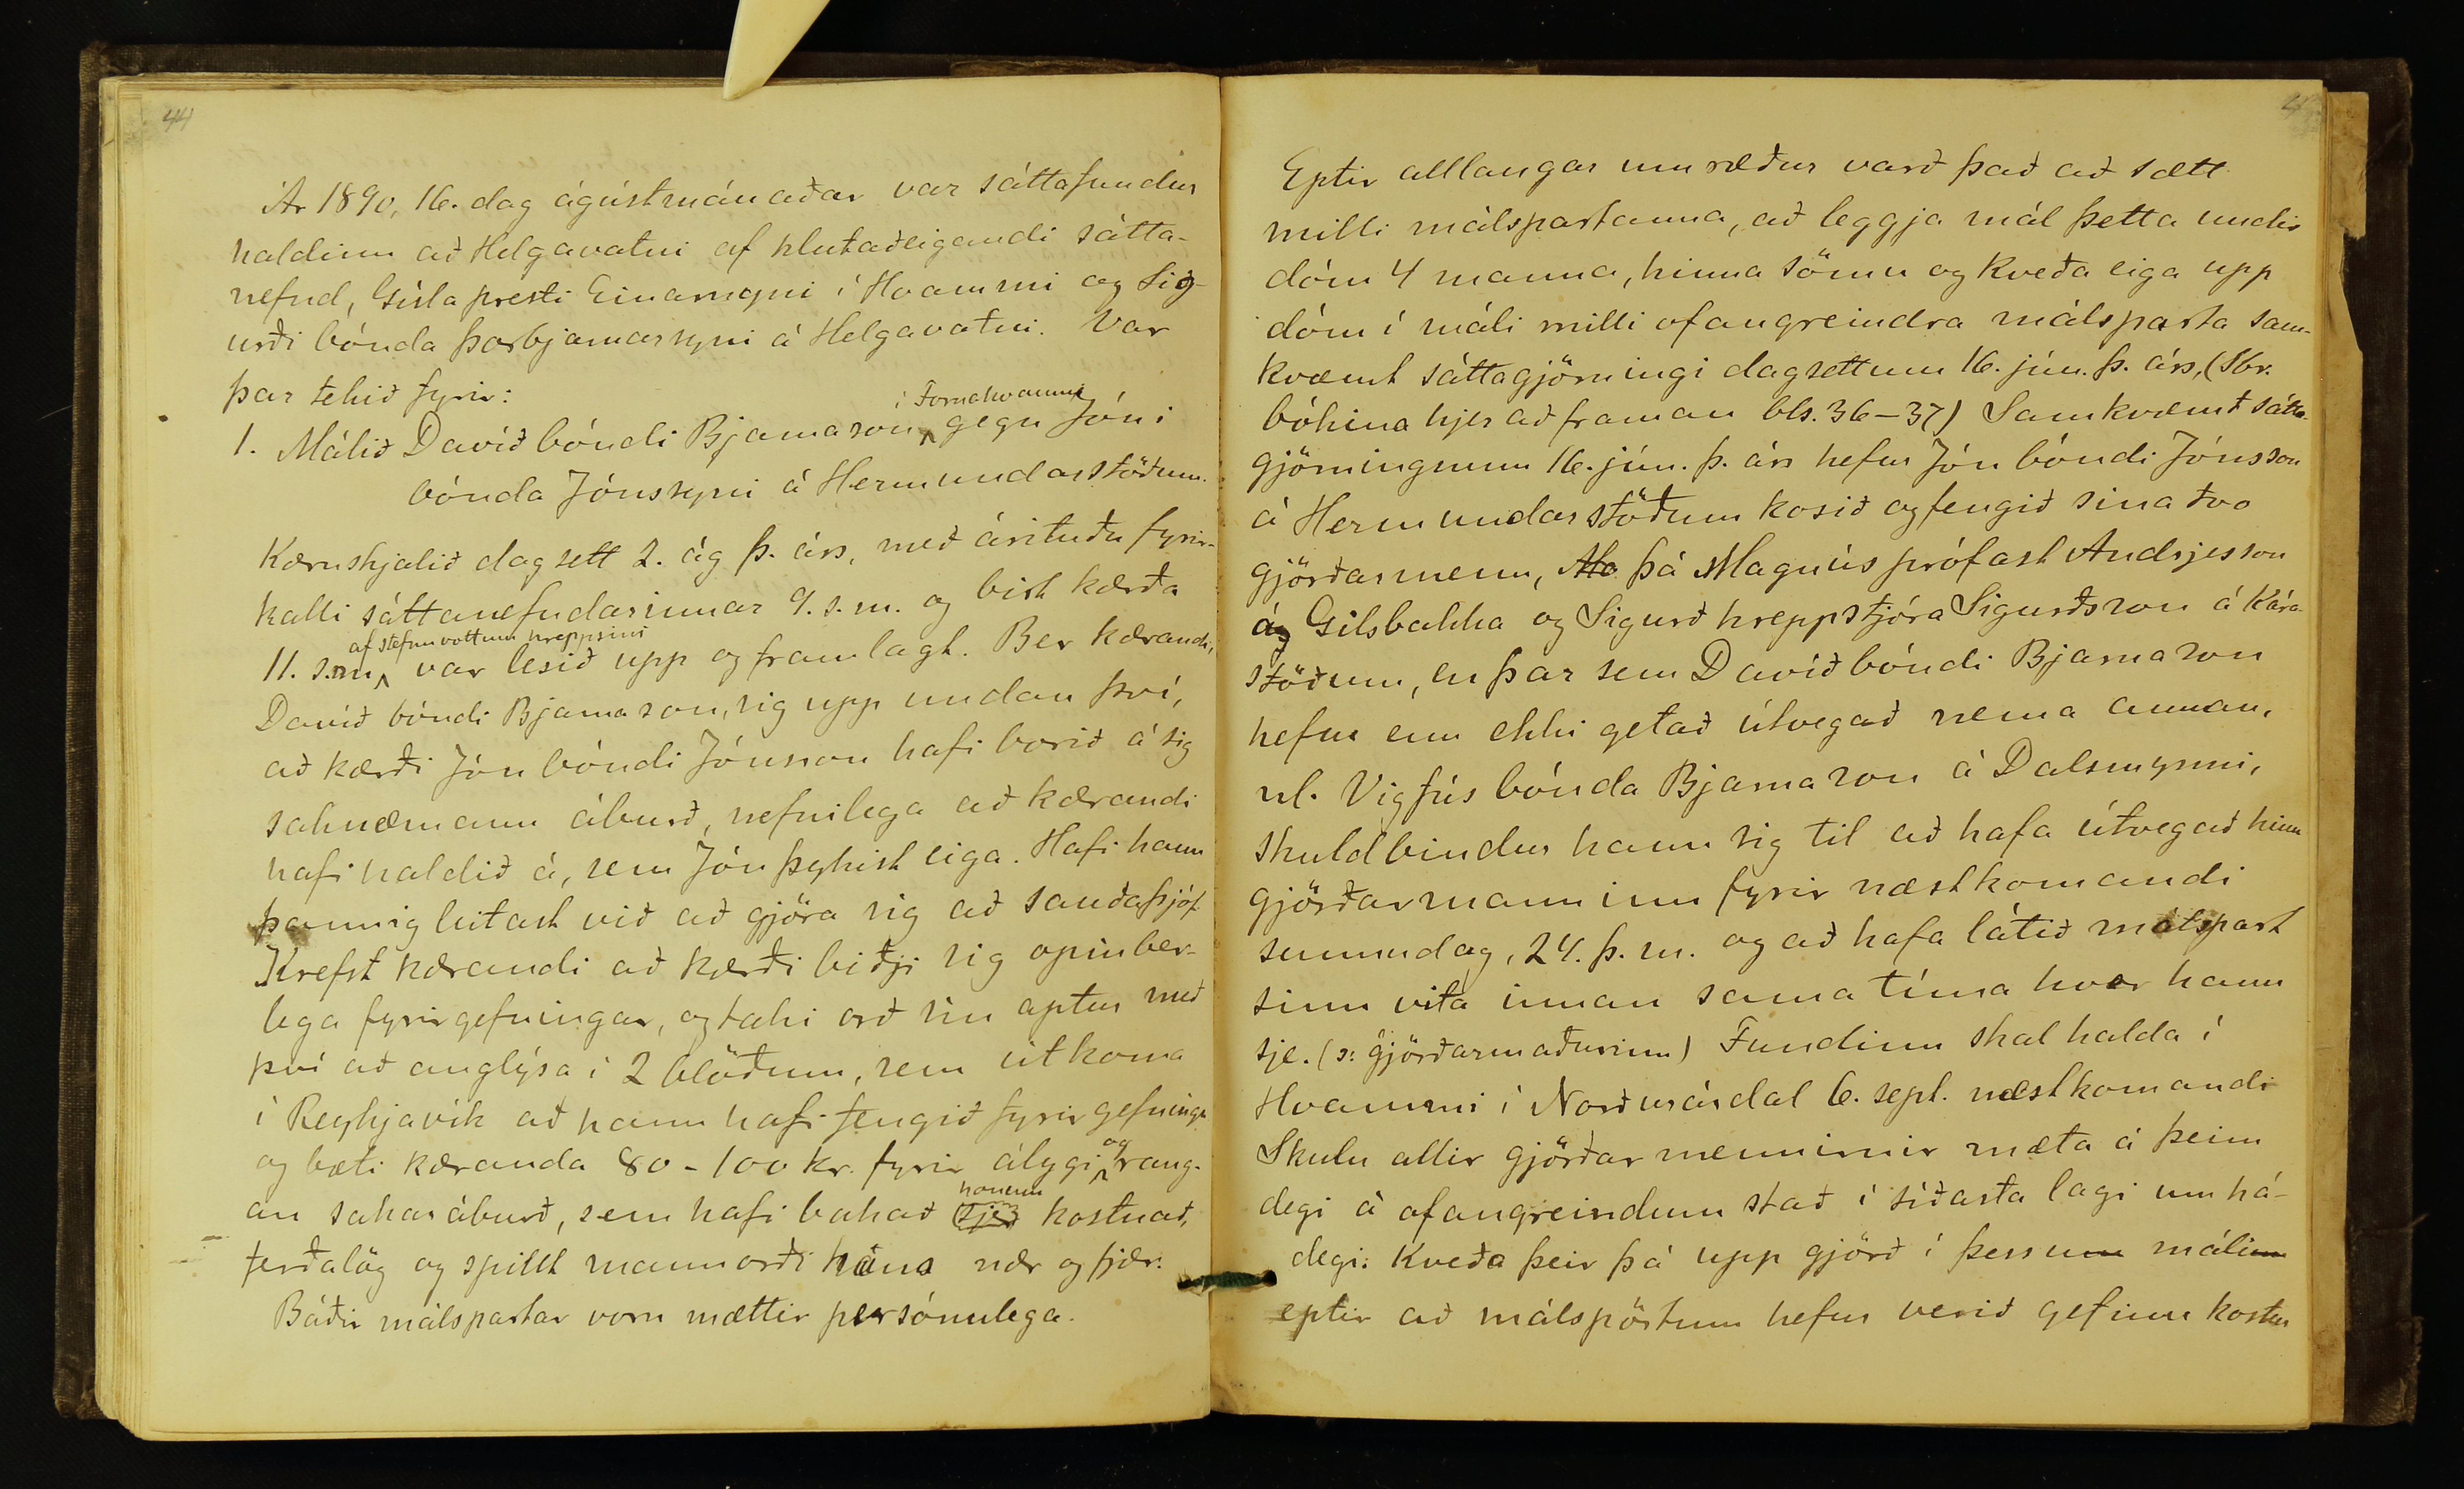 44
Ár 1890, 16. dag ágústmánaðar var sáttafundur
haldinn að Helgavatni af hlutaðeigandi sátta-
nefnd, Gísla presti Einarssyni í Hvammi og Sig-
urði bónda Þorbjarnarsyni á Helgavatni. Var
þar tekið fyrir:
í Fornahvammi
1. Málið Davíð bóndi Bjarnason gegn Jóni
bónda Jónssyni á Hermundarstöðum.
Kæruskjalið dagsett 2. ág þ. árs, með árituðu fyrir-
kalli sáttanefndarinnar 9. s.m. og birt kærða
af stefnuvottum hreppsins
11. s.m. var lesið upp og framlagt. Ber kærandi,
Davíð bóndi Bjarnason, sig upp undan því,
að kærði Jón bóndi Jónsson hafi borið á sig
saknæmann áburð, nefnilega að kærandi
hafi haldið á, sem Jón þykist eiga. Hafi hann
þannig leitast við að gjöra sig að sauðaþjóf.
Krefst kærandi að kærði biðji sig opinber-
lega fyrirgefningar, og taki orð sín aptur með
því að auglýsa í 2 blöðum, sem út koma
í Reykjavík að hann hafi fengið fyrirgefningu
og bæti kæranda 80-100 kr. fyrir álygi og rang-
an sakaráburð, sem hafi bakað sjer honum kostnað,
ferðalög og spillt mannorði hans nær og fjær.
Báðir málspartar voru mættir persónulega.
Eptir alllangar umræður varð það að sætt
milli málspartanna, að leggja mál þetta undir
dóm 4 manna, hinna sömu og kveða eiga upp
dóm í máli milli ofangreindra málsparta sam-
kvæmt sáttagjörningi dagsettum 16. jún. þ. árs, (Sbr.
bókina hjer að framan bls. 36-37) Samkvæmt sátta-
gjörningnum 16. jún. þ. árs hefur Jón bóndi Jónsson
á Hermundarstöðum kosið og fengið sina tvo
gjörðarmenn, Ma þá Magnús prófast Andrjesson
á Gilsbakka og Sigurð hreppstjóra Sigurðsson á Kára-
stöðum, en þar sem Davíð bóndi Bjarnason
hefur enn ekki getað útvegað nema annan,
nl. Vigfús bónda Bjarnason á Dalsmynni,
skuldbindur hann sig til að hafa útvegað hinn
gjörðarmanninn fyrir næstkomandi
sunnudag, 24. þ. m. og að hafa látið málspart
sinn vita innan sama tíma hver hann
sje. (ɔ: gjörðarmaðurinn) Fundinn skal halda í
Hvammi í Norðurárdal 6. sept. næstkomandi
Skulu allir gjörðarmennirnir mæta á þeim
degi á ofangreindum stað í síðasta lagi um há-
degi. Kveða þeir þá upp gjörð í þessum málinu
eptir að málspörtum hefur verið gefinn kostur